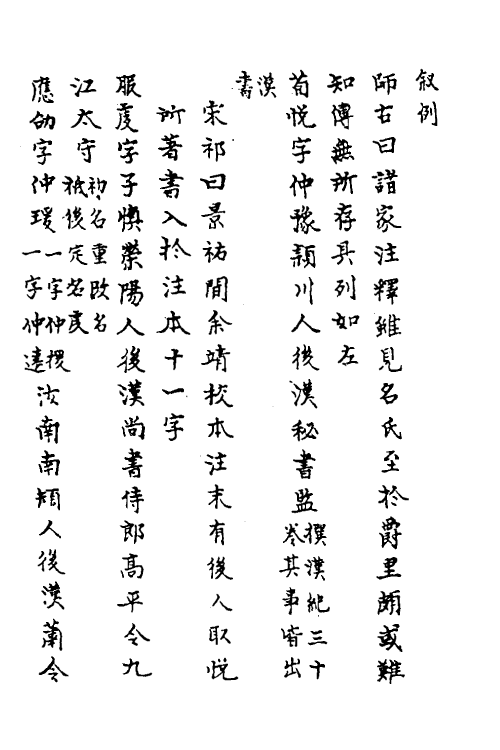 叙例
師古曰諸家注釋雖見名氏至於爵里頗或難
知傳無所存具列如左
荀悅字仲豫頴川人後漢秘書監撰漢紀三十卷其事皆出
漢書
宋祁曰景祐間余靖校本注末有後人取悅
所著書入於注本十一字
服虔字子慎滎陽人後漢尚書侍郎高平令九
江太守初名重改名祇後定名虔
應劭字仲瑗一字仲援一字仲遠汝南南頓人後漢蕭令